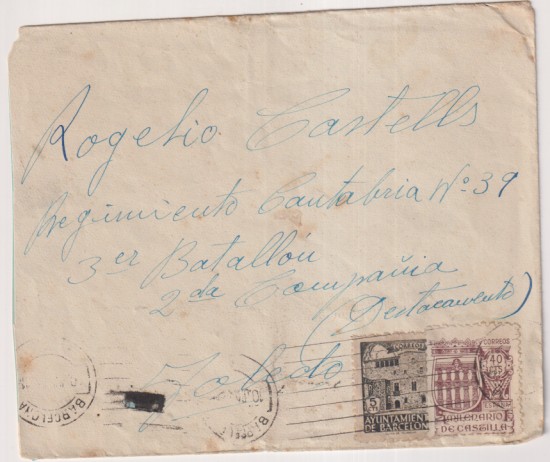 Rogelio Castells
Regimiento Cantabria Nº 39
3er Batallón
2da Compañia
(Destacamento)
Toledo
CORREOS
5
AYUNTAMIENTO
DE BARCELONA
CORREOS
40
CTS
MILENARIO
DE CASTILLA
BARCELONA
BARCEL